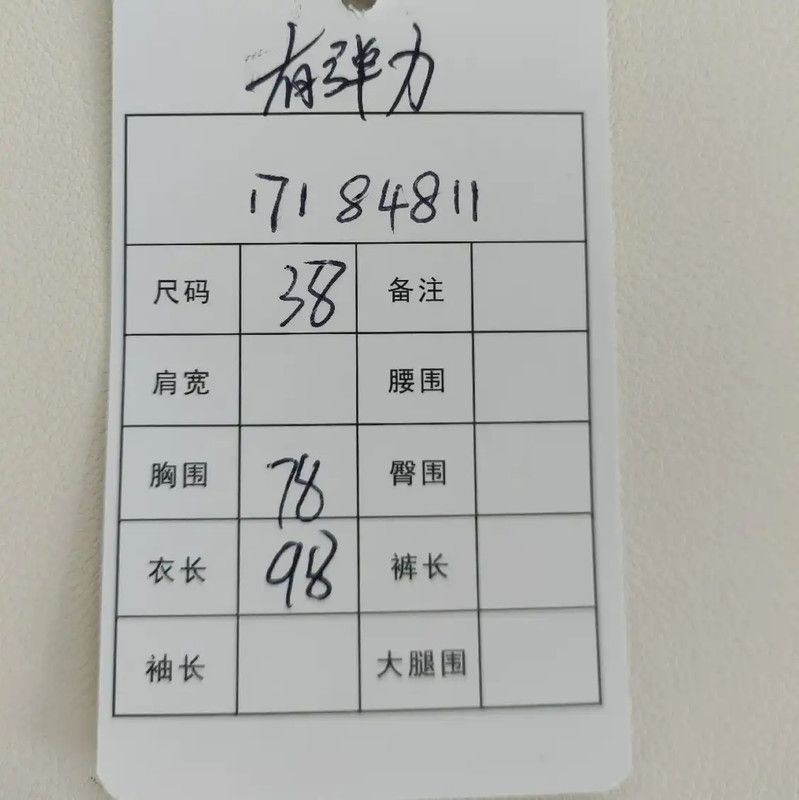 有弹力
17184811
尺码 38 备注
肩宽 腰围
胸围 78 臀围
衣长 98 裤长
袖长 大腿围